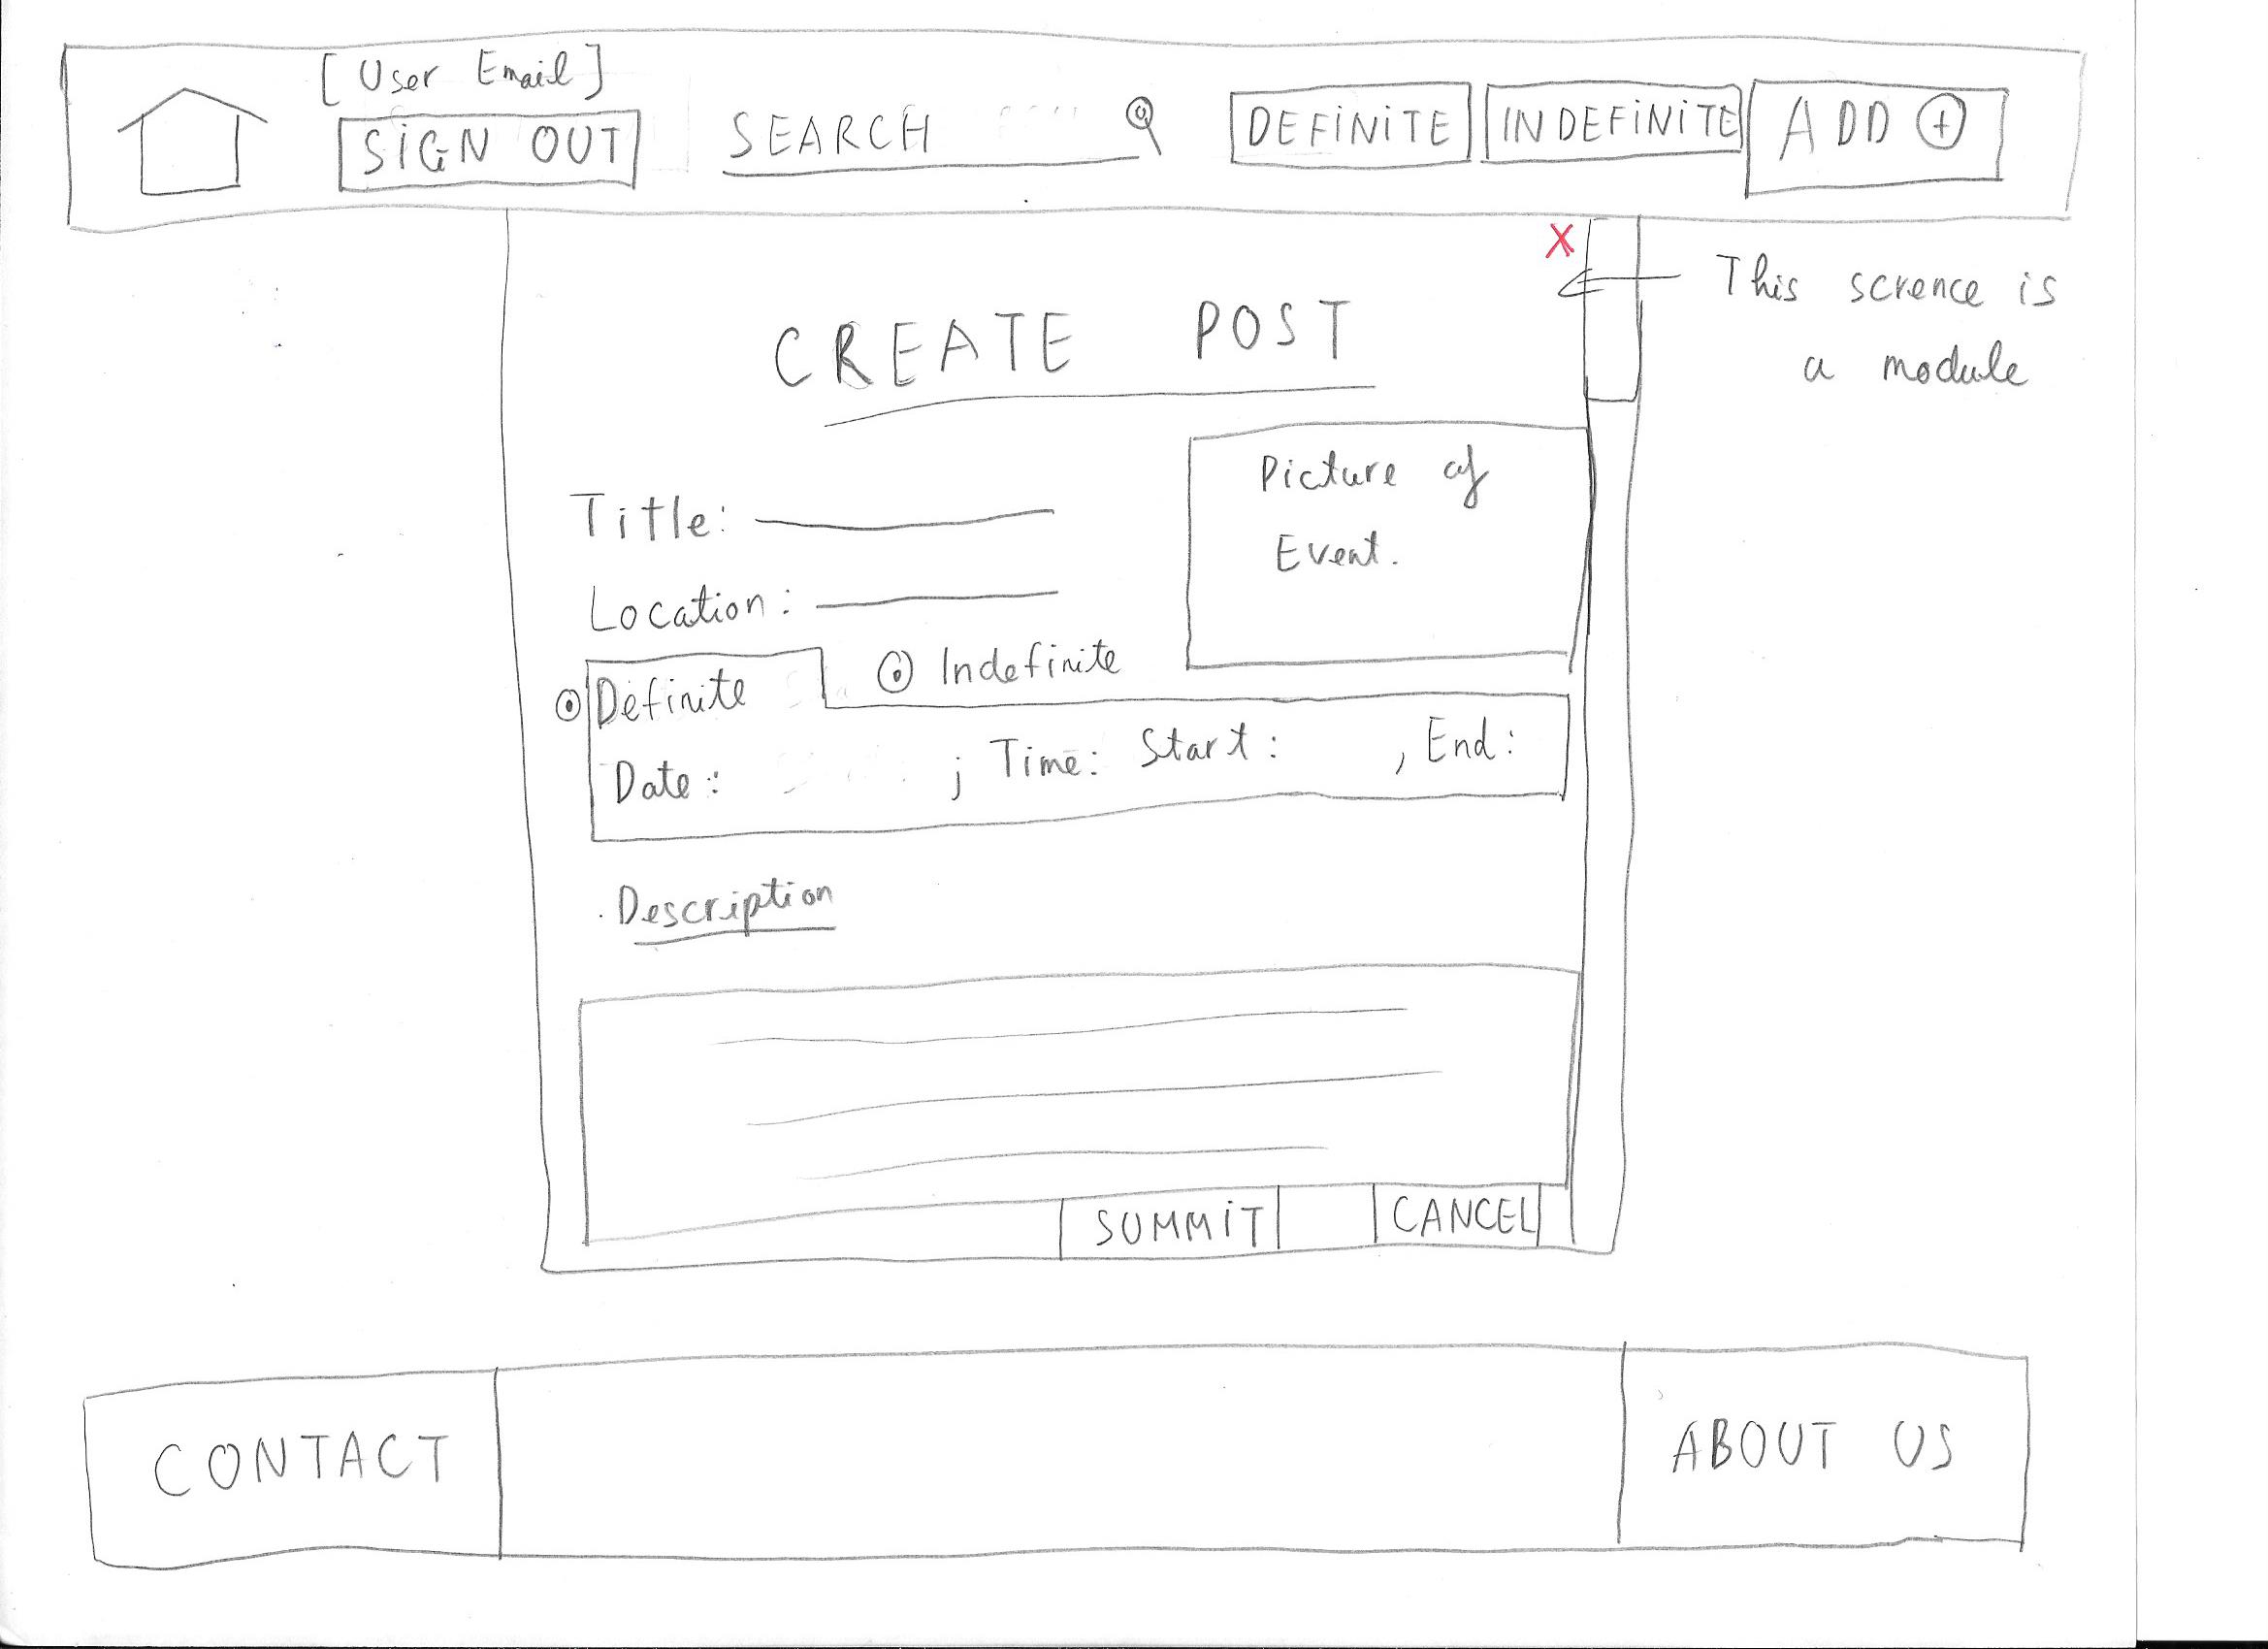 [User Email]
SIGN OUT
SEARCH
DEFINITE
INDEFINITE
ADD +
X
This scrence is
a module
CREATE POST
Picture of
Event.
Title:
Location:
Definite
Indefinite
Date: ; Time: Start: , End:
Description
SUMMIT
CANCEL
CONTACT
ABOUT US